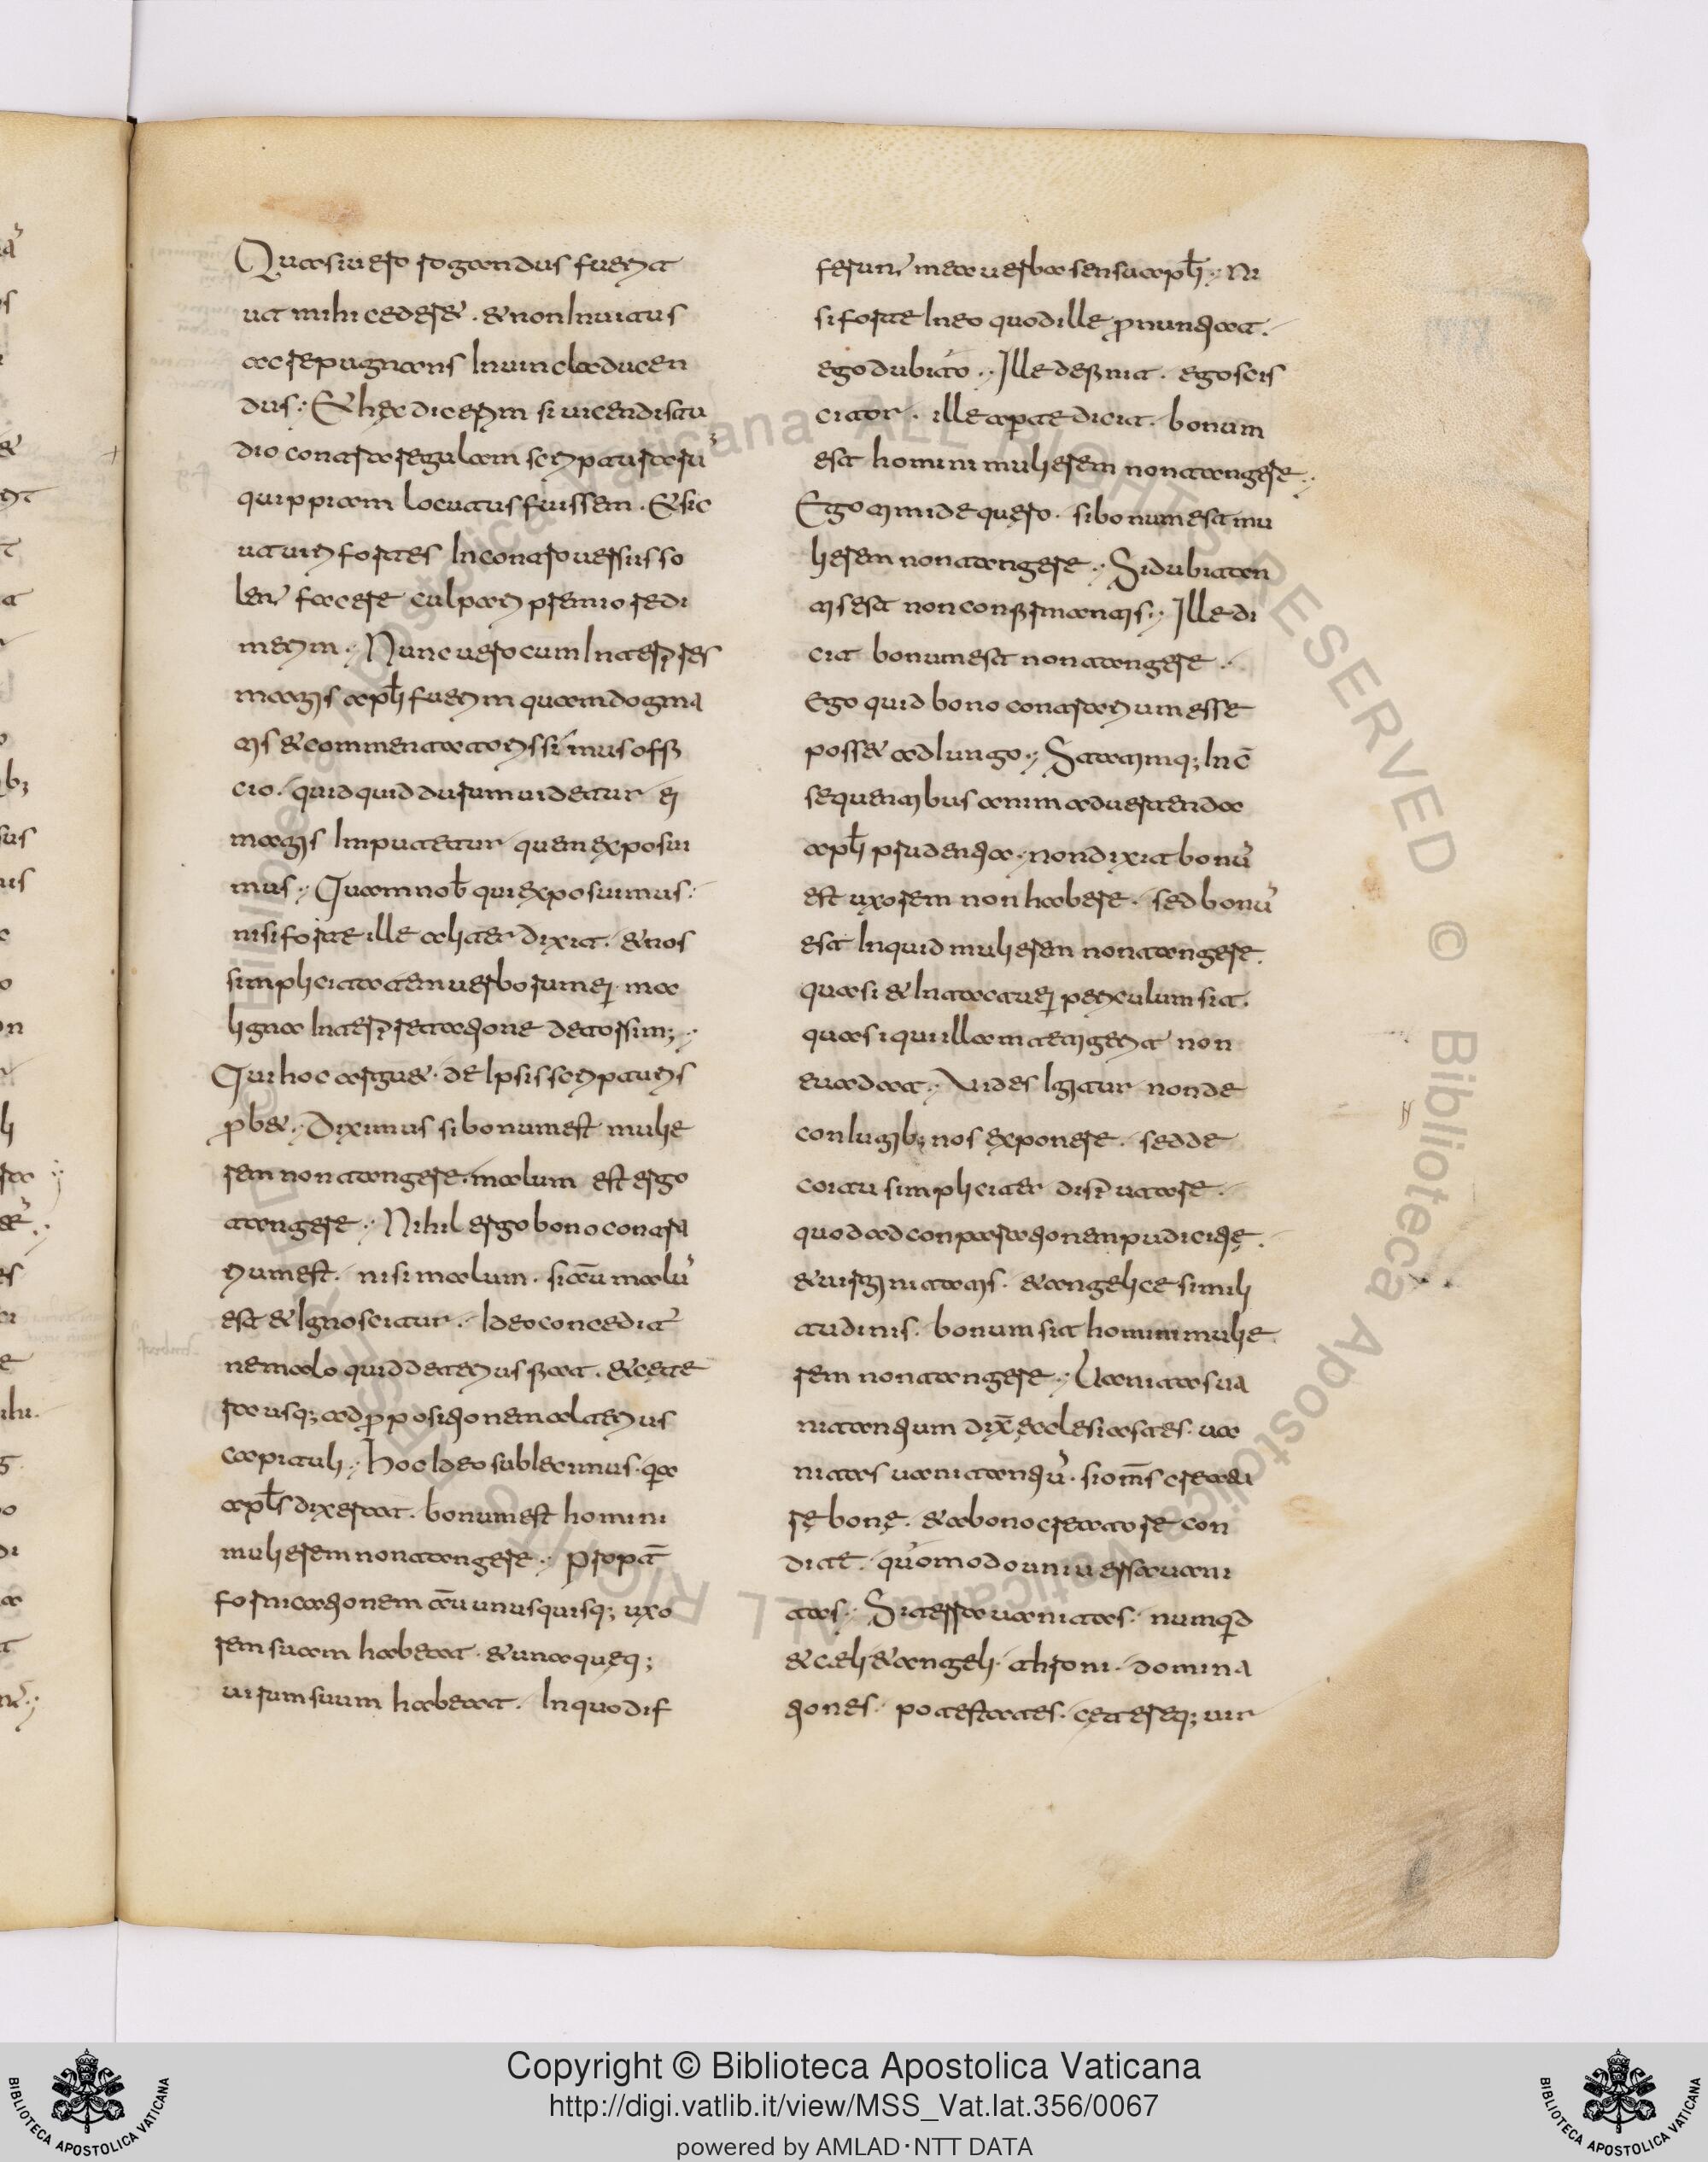 Quasi uero rogandus fuerit
ut mihi cederet. & non Inuitus
ac repugnans In uincla ducen
dus; Et hęc dicerem si uicendi stu
dio contra regulam scripturarū
quippiam locutus fuissem. Et sic
ut uiri fortes In controuersiis so
lent facere culpam premio redi
merem; Nunc uero cum Interpres
magis apłi fuerim quam dogma
tis & commentatoris simus offi
cio. quidquid durum uidetur ei
magis Imputetur quem exposui
mus; Quam nob qui exposuimus;
nisi forte ille aliter dixit. & nos
simplicitatem uerborum ei ma
ligna Interpretatione detorsim;
Qui hoc arguet. de Ipsis scripturis
pbet; Diximus si bonum est mulie
rem non tangere. malum est ergo
tangere; Nihil ergo bono contra
rium est. nisi malum. si aū malū
est & Ignoscitur. Ideo concedit̄
ne malo quid deterius fiat. & cete
ra usq; ad ppositionem alterius
capituli; Hoc Ideo subIecimus. qa
apłs dixerat. bonum est homini
mulierem non tangere; Proptē
fornicationem aū unusquisq; uxo
rem suam habeat. & unaquęq;
uirum suum habeat. In quo dif
ferunt mea uerba sensu apłi; Ni
si forte In eo quod ille pnuntiat.
ego dubito; Ille definit. ego scis
citor. ille apte dicit. bonum
est homini mulierem non tangere;
Ego timide quęro. si bonum est mu
lierem non tangere; Si dubitan
tis est non confirmantis; Ille di
cit bonum est non tangere.
Ego quid bono contrarium esse
posset adIungo; Statimq; In c̄
sequentibus animaduertenda
apłi prudentia; non dixit bonū
est uxorem non habere. sed bonū
est Inquid mulierem non tangere.
quasi & In tactu ei periculum sit.
quasi qui illam tetigerit non
euadat; Uides Igitur non de
conIugib; nos exponere. sed de
coitu simpliciter disputare.
quod ad conparationem pudicitię.
& uirginitatis. & angelice simili
tudinis. bonum sit homini mulie
rem non tangere; Uanitas ua
nitantium dix̄ ęcclesiastes. ua
nitas uanitantiū. si om̄s creatu
rę bonę. & a bono creatore con
ditę. quomodo uniuersa uani
tas; Si terra uanitas. numqd
& cęli & angeli. throni. domina
tiones. potestates. cętereq; uir
Copyright © Biblioteca Apostolica Vaticana
http://digi.vatlib.it/view/MSS_Vat.lat.356/0067
powered by AMLAD·NTT DATA
BIBLIOTECA APOSTOLICA VATICANA
BIBLIOTECA APOSTOLICA VATICANA